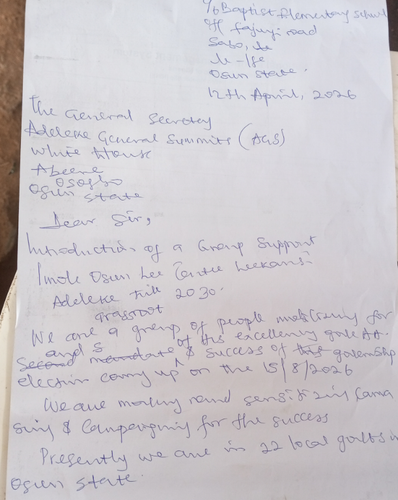 c/o Baptist Elementary school
Off Fajuyi road
Sabo, Ile
Ile-Ife
Osun State.
12th April, 2026
The General Secretary
Adeleke General Summits (AGS)
White House
Abeere
Osogbo
Osun State
Dear Sir,
Introduction of a Group Support
Imole Osun Lee
Adeleke till 2030.
grassroot
We are a group of people for
and S of his excellency
Second mandate & success of this
election coming up on the 15/8/2026
We are and
& Campaigning for the success
Presently we are in 22 local govts in
Osun State.